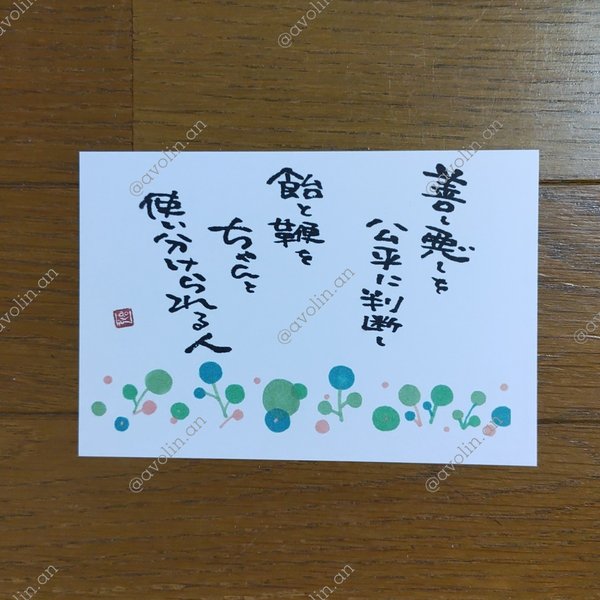 善し悪しを
公平に判断し
飴と鞭を
ちゃんと
使い分けられる人
@avolin.an
@avolin.an
@avolin.an
@avolin.an
@avolin.an
@avolin.an
@avolin.an
@avolin.an
@avolin.an
@avolin.an
@avolin.an